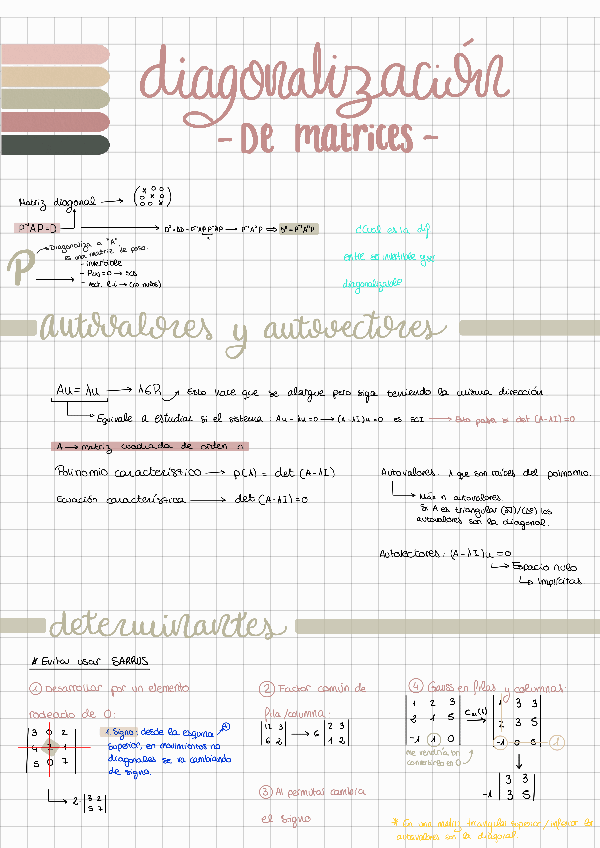 diagonalización
- De matrices -
Matriz diagonal → (x 0 0 / 0 x 0 / 0 0 x)
P⁻¹AP = D → D² = DD = P⁻¹AP P⁻¹AP → P⁻¹A²P ⇒ Dⁿ = P⁻¹AⁿP
¿Cual es la dif
entre ser invertible y ser
diagonalizable
P → Diagonaliza a "A".
es una matriz de paso.
- invertible
→ SCD
autovalores y autovectores
Au = λu → λ∈R → Esto hace que se alargue pero siga teniendo la misma dirección
Equivale a estudiar si el sistema: Au - λu = 0 → (A-λI)u = 0 es SCI → Esto pasa si det (A-λI) = 0
A → matriz cuadrada de orden n
Polinomio característico → p(λ) = det (A-λI)
Ecuación característica → det (A-λI) = 0
Autovalores: λ que son raíces del polinomio.
→ Máx n autovalores
Si A es triangular los
autovalores son la diagonal.
Autovectores: (A-λI)u = 0
→ Espacio nulo
→ Implícitas
determinantes
* Evitar usar SARRUS
① Desarrollar por un elemento
rodeado de 0:
3 0 2
4 2 1
5 0 7
! Signo: desde la esquina
superior, en movimientos no
diagonales se va cambiando
de signo.
→ 2· |3 2|
|5 7|
② Factor común de
fila/columna:
|12 3| → 6 |2 3|
|6 2| |1 2|
③ Al permutar cambia
el signo
④ Gauss en filas y columnas:
1 2 3 → 1 3 3
2 1 5 2 3 5
-1 1 0 -1 0 5
me vendría bn
convertirlo en 0
-1 |3 3|
|3 5|
* En una matriz triangular superior/inferior los
autovalores son la diagonal